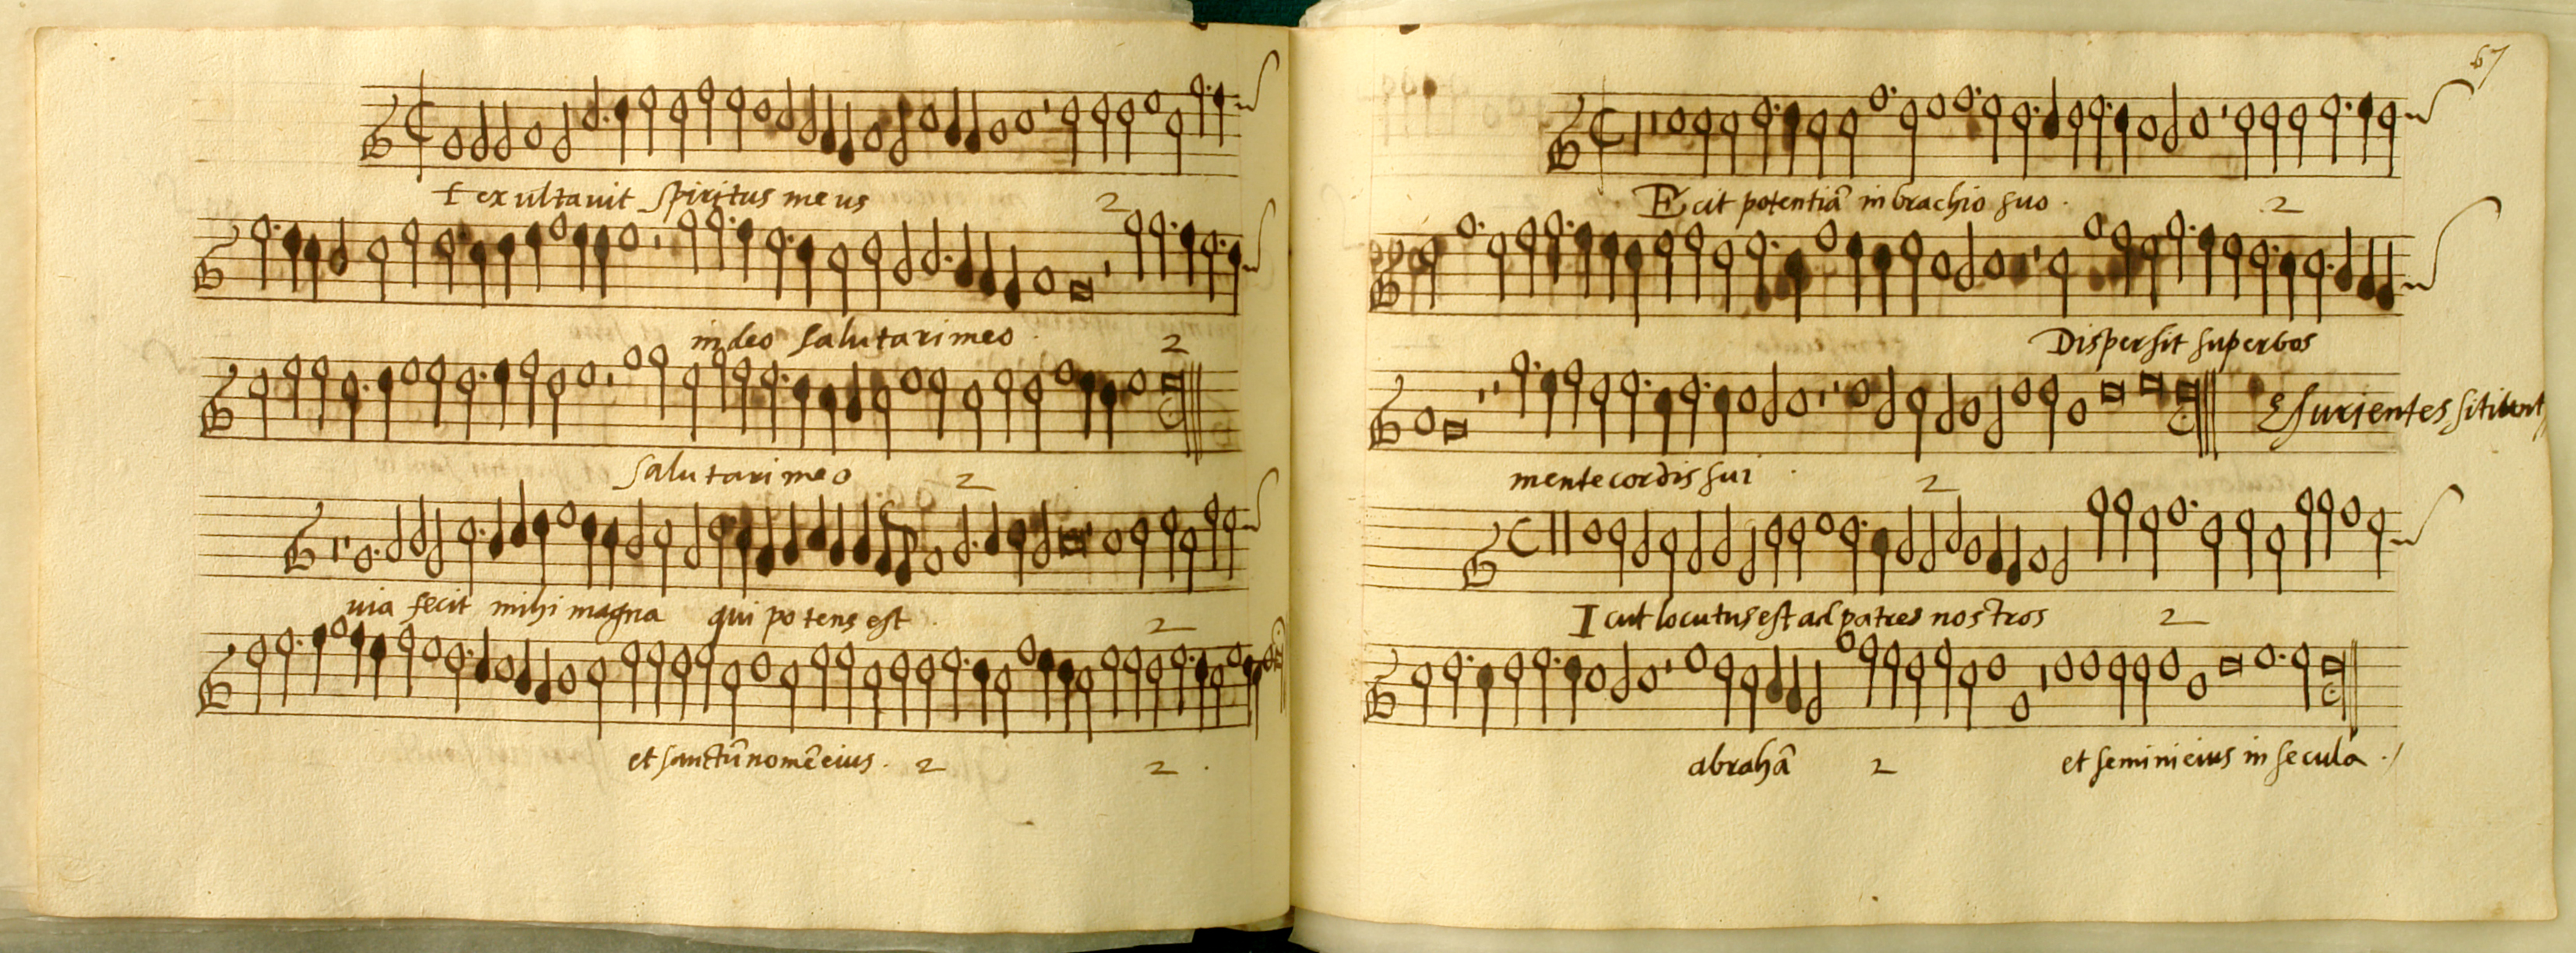 Et exultavit Spiritus meus 2
in deo Salutari meo . 2
Salutari meo 2
uia fecit mihi magna qui potens est . 2
et sanctū nomē eius . 2 2 .
67
Ecit potentiā in brachio suo . 2
Dispersit superbos
Esurientes
mente cordis sui . 2
Icut locutus est ad patres nostros 2
abrahā 2 et semini eius in secula .